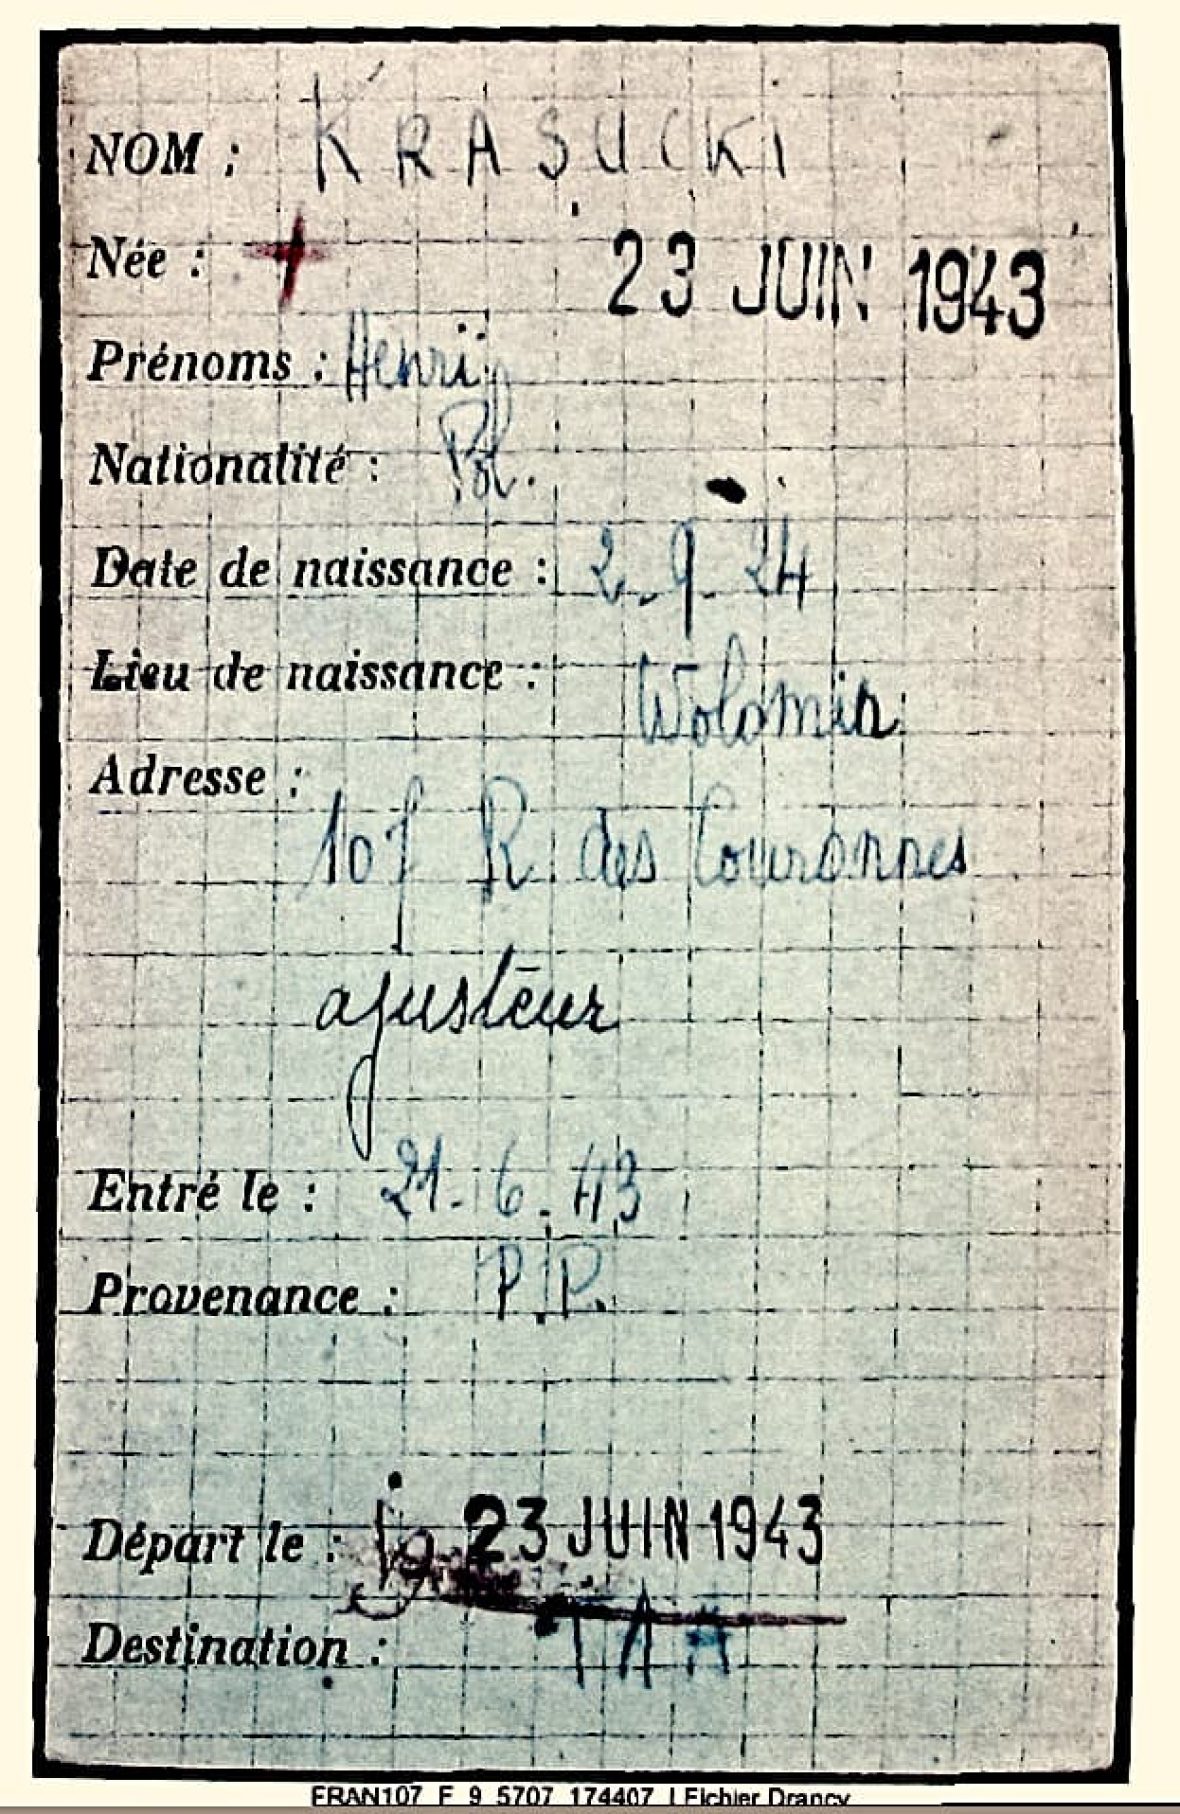 NOM : KRASUCKI
Née : 23 JUIN 1943
Prénoms : Henrij
Nationalité : Pol.
Date de naissance : 2.9.24
Lieu de naissance : Wolomin
Adresse :
107 R. des Couronnes
ajusteur
Entré le : 21.6.43
Provenance : P.P.
Départ le : 23 JUIN 1943
Destination :
FRAN107_F_9_5707_174407_L Fichier Drancy